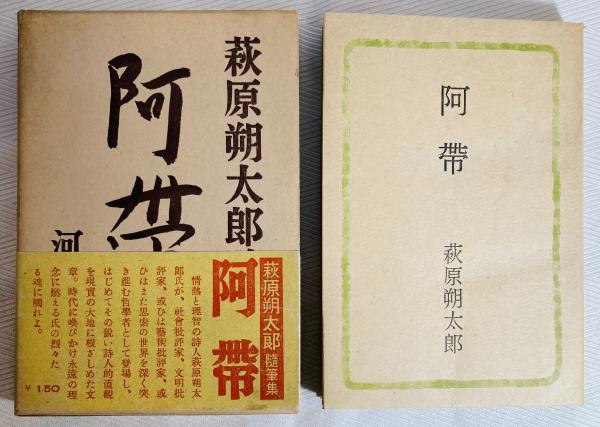 萩原朔太郎
阿帶
河
萩原朔太郎 隨筆集
阿帶
情熱と理智の詩人萩原朔太
郎氏が、社會批評家、文明批
評家、或ひは藝術批評家、或
ひはまた思索の世界を深く突
き進む哲學者として登場し、
はじめてその鋭い詩人的直觀
を現實の大地に根ざしめた文
章。時代に喚びかけ永遠の理
念に燃える氏の烈々た
る魂に觸れよ。
¥ 1.50
阿帶
萩原朔太郎